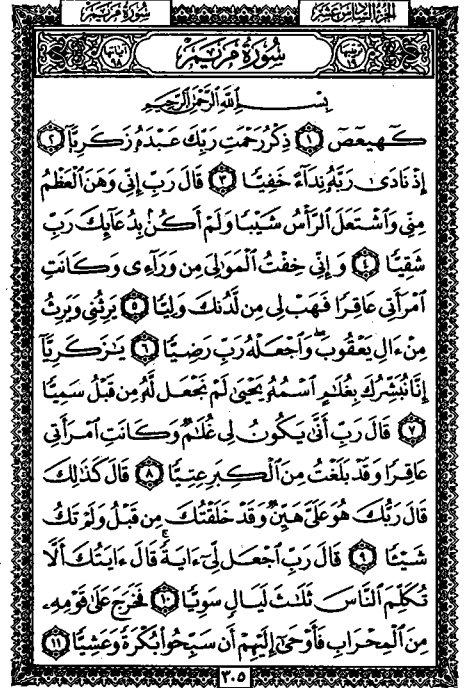 سُورَةُ مَرْيَمَ
الجزء السادس عشر
ترتيبها ١٩
سُورَةُ مَرْيَمَ
آياتها ٩٨
بِسْمِ اللَّهِ الرَّحْمَٰنِ الرَّحِيمِ
كٓهيعٓصٓ ١ ذِكْرُ رَحْمَتِ رَبِّكَ عَبْدَهُۥ زَكَرِيَّآ ٢
إِذْ نَادَىٰ رَبَّهُۥ نِدَآءً خَفِيًّا ٣ قَالَ رَبِّ إِنِّى وَهَنَ ٱلْعَظْمُ
مِنِّى وَٱشْتَعَلَ ٱلرَّأْسُ شَيْبًا وَلَمْ أَكُنۢ بِدُعَآئِكَ رَبِّ
شَقِيًّا ٤ وَإِنِّى خِفْتُ ٱلْمَوَٰلِىَ مِن وَرَآءِى وَكَانَتِ
ٱمْرَأَتِى عَاقِرًا فَهَبْ لِى مِن لَّدُنكَ وَلِيًّا ٥ يَرِثُنِى وَيَرِثُ
مِنْ ءَالِ يَعْقُوبَ ۖ وَٱجْعَلْهُ رَبِّ رَضِيًّا ٦ يَٰزَكَرِيَّآ
إِنَّا نُبَشِّرُكَ بِغُلَٰمٍ ٱسْمُهُۥ يَحْيَىٰ لَمْ نَجْعَل لَّهُۥ مِن قَبْلُ سَمِيًّا
٧ قَالَ رَبِّ أَنَّىٰ يَكُونُ لِى غُلَٰمٌ وَكَانَتِ ٱمْرَأَتِى
عَاقِرًا وَقَدْ بَلَغْتُ مِنَ ٱلْكِبَرِ عِتِيًّا ٨ قَالَ كَذَٰلِكَ
قَالَ رَبُّكَ هُوَ عَلَىَّ هَيِّنٌ وَقَدْ خَلَقْتُكَ مِن قَبْلُ وَلَمْ تَكُ
شَيْـًٔا ٩ قَالَ رَبِّ ٱجْعَل لِّىٓ ءَايَةً ۚ قَالَ ءَايَتُكَ أَلَّا
تُكَلِّمَ ٱلنَّاسَ ثَلَٰثَ لَيَالٍ سَوِيًّا ١٠ فَخَرَجَ عَلَىٰ قَوْمِهِۦ
مِنَ ٱلْمِحْرَابِ فَأَوْحَىٰٓ إِلَيْهِمْ أَن سَبِّحُوا۟ بُكْرَةً وَعَشِيًّا ١١
٣٠٥